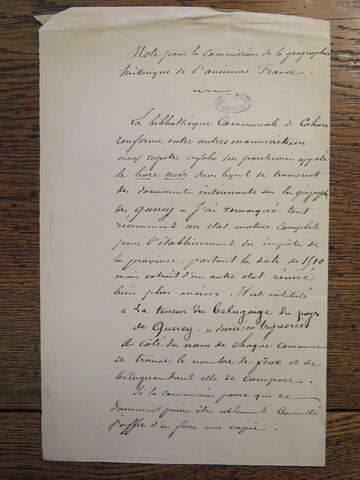 Note pour la commission de la géographie
historique de l'ancienne France.
La bibliothèque Communale de Cahors
renferme entre autres manuscrits un
vieux registre infolio sur parchemin appelé
le livre noir dans lequel se trouvent
des documents intéressants sur la géographie
du Quercy - j'ai remarqué tout
récemment un état matrice complet
pour l'établissement des impôts de
la province portant la date de 1510
mais extrait d'un autre état
bien plus ancien. Il est intitulé
« La teneur du Belugaige du pays
de Quercy, » divisé en vigueries
A côté du nom de chaque commune
se trouve le nombre de feux et de
béluques dont elle se compose.
Si la commission pense que ce
document puisse être utilement consulté
j'offre d'en faire une copie.